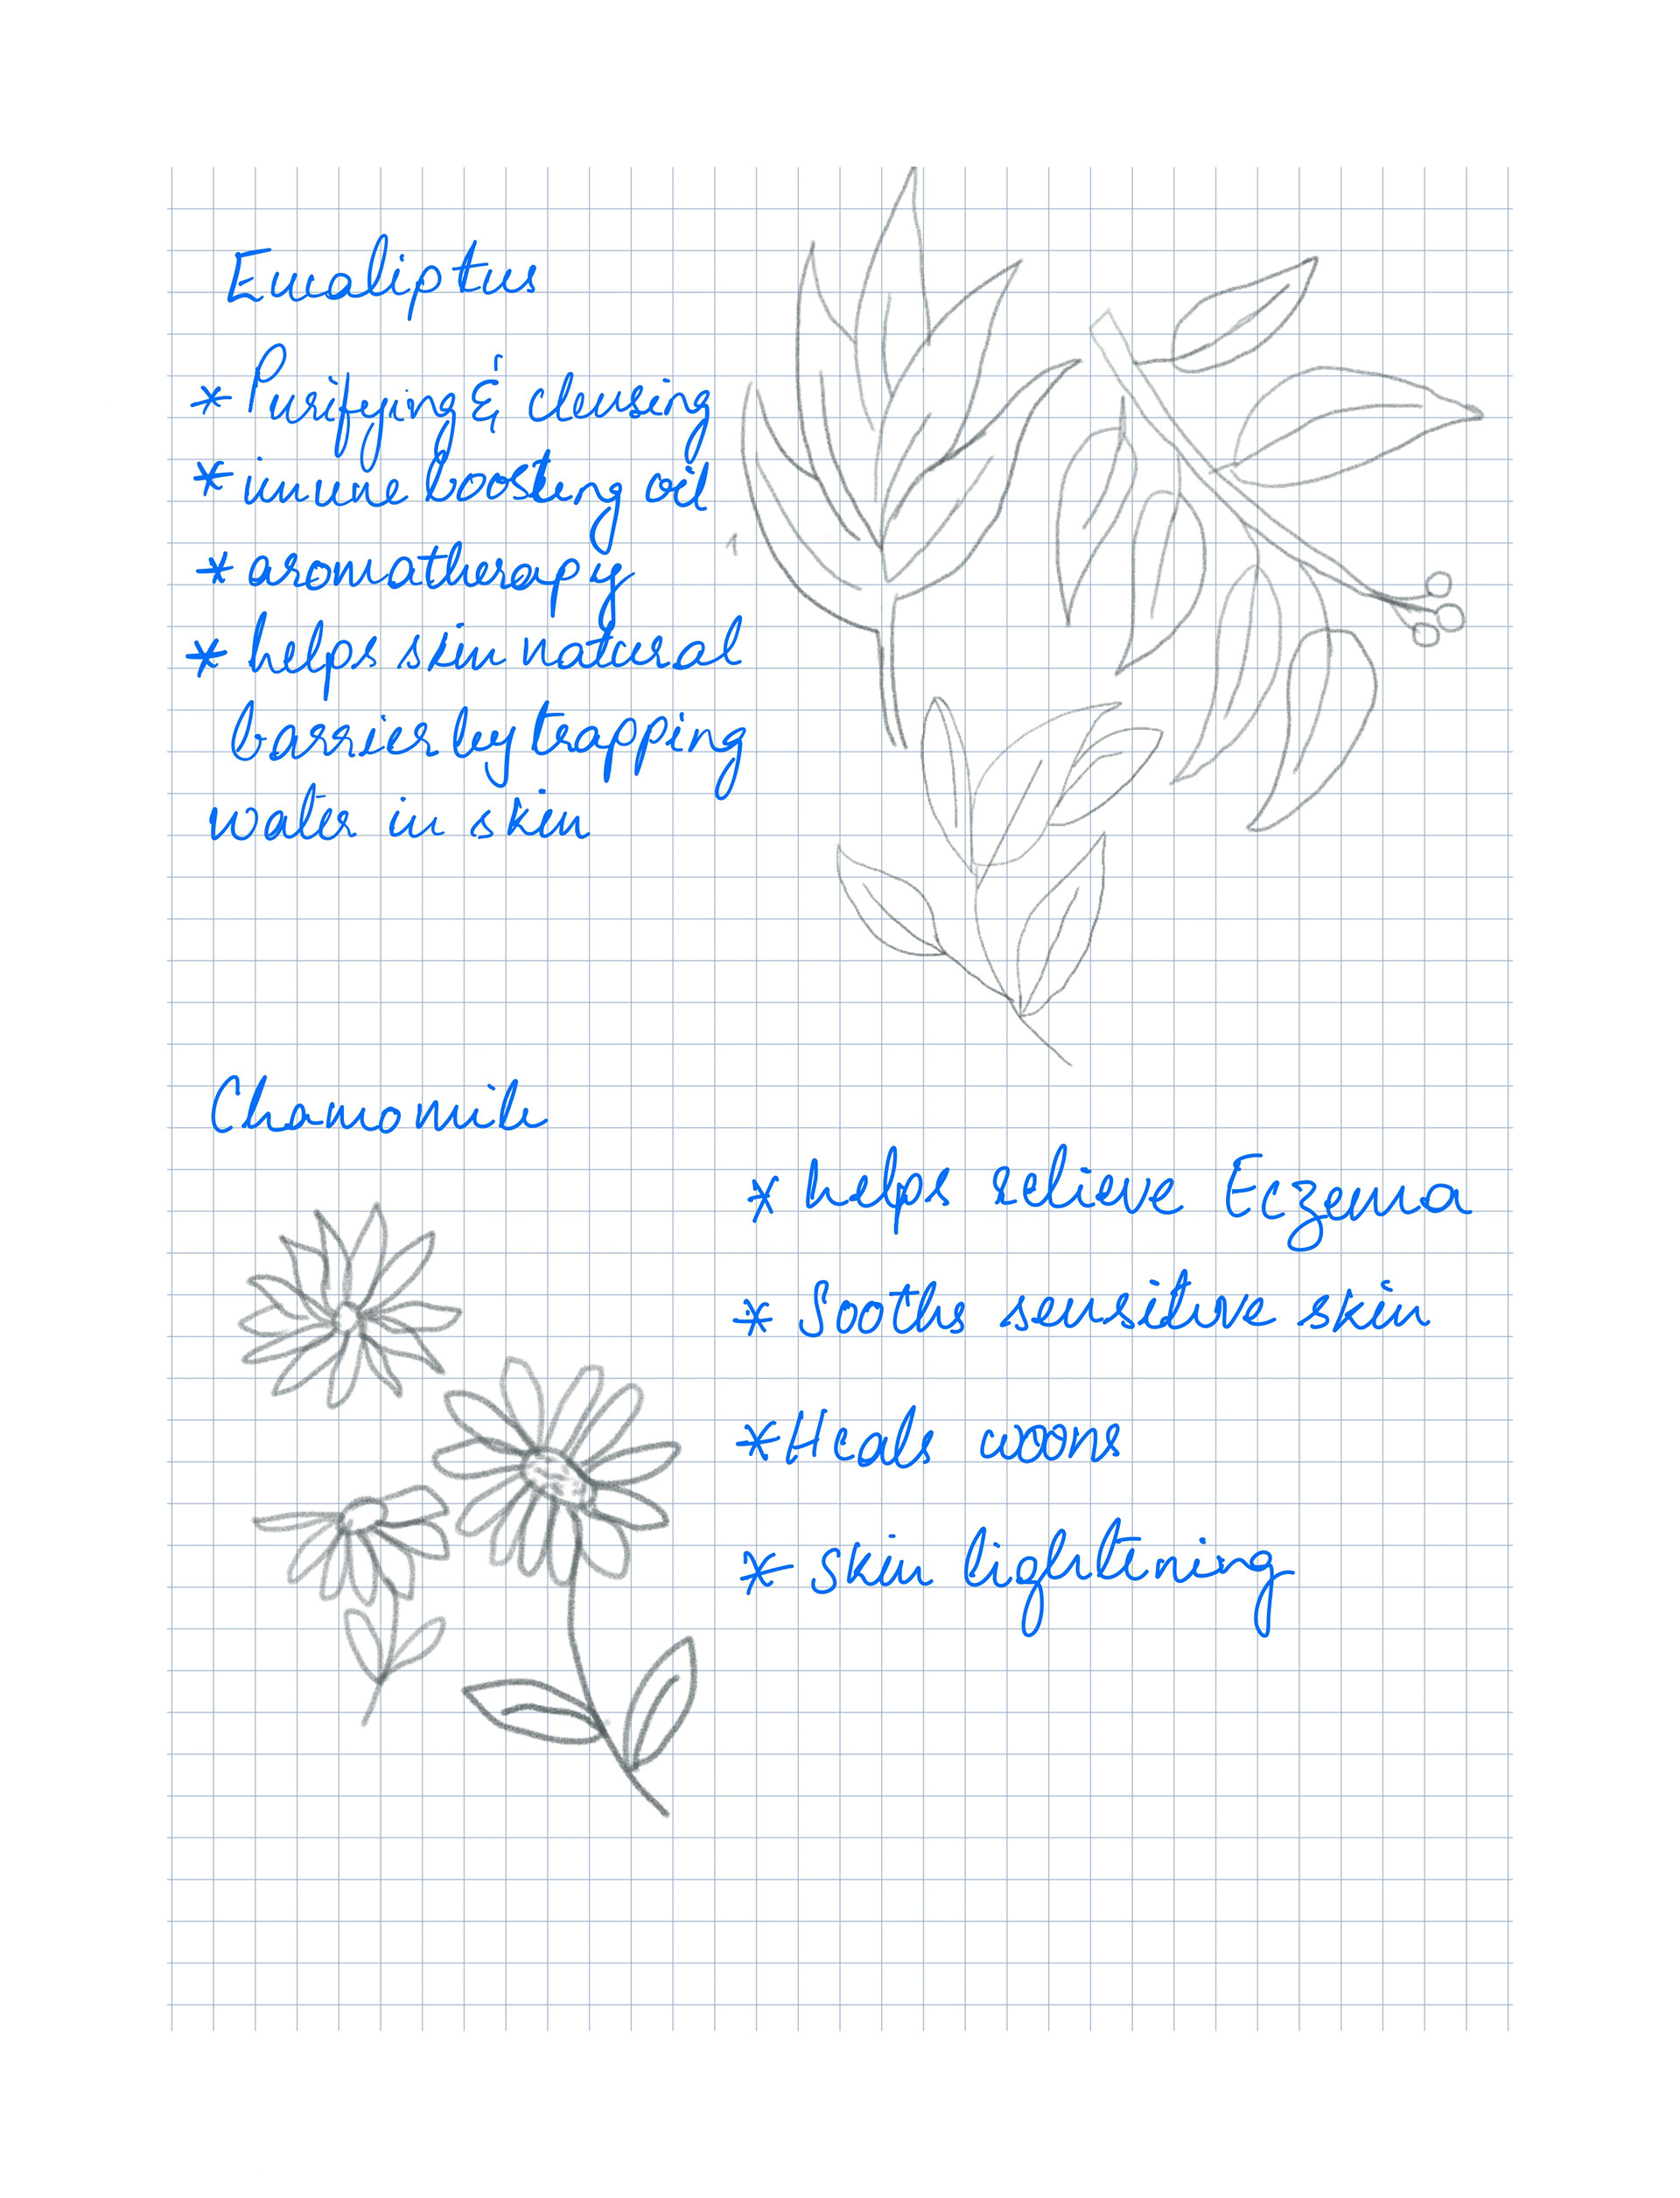 Eucaliptus
* Purifying & clensing
* imune boosting oil
* aromatherapy
* helps skin natural
barrier by trapping
water in skin
Chamomile
* helps relieve Eczema
* Sooths sensitive skin
* Heals woons
* skin lightening